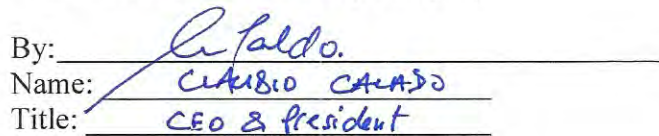 By:
Name: CLAUDIO CALADO
Title: CEO & President